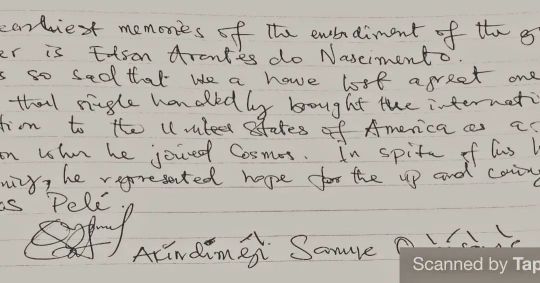 earliest memories of the embodiment of the
er is Edson Arantes do Nascimento.
s so sad that we a have lost a great one
that single handledly brought the internati
tion to the United States of America as a
on when he joined Cosmos. In spite of his
he represented hope for the up and coming
as Pelé.
Akindiméji Samue
Scanned by Tap